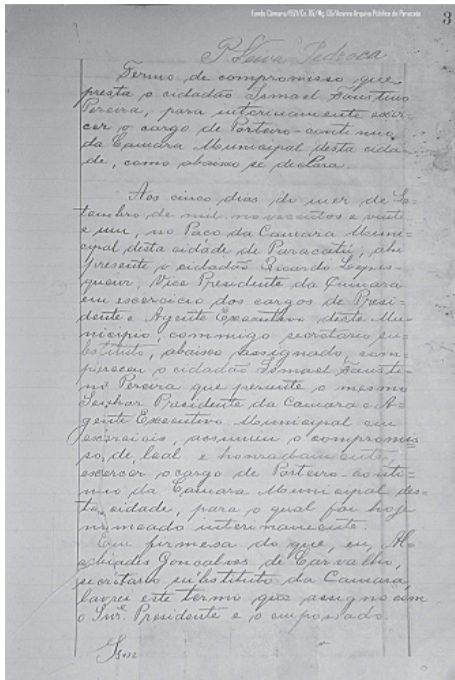 Fundo Câmara/1921/Cx. 05/Mç. 05/Acervo Arquivo Público de Paracatu
3
P. Neiva Pedroca
Termo de compromisso que
presta o cidadão Ismael Faustino
Pereira, para interinamente exer-
cer o cargo de Porteiro-continuo
da Camara Municipal desta cida-
de, como abaixo se declara.
Aos cinco dias do mez de Se-
tembro de mil novecentos e vinte
e um, no Paço da Camara Muni-
cipal desta cidade de Paracatú, ahi
presente o cidadão Ricardo
Vice Presidente da Camara
em exercicio dos cargos de Presi-
dente e Agente Executivo deste Mu-
nicipio, commigo secretario su-
bstituto, abaixo assignado, com-
pareceu o cidadão Ismael Fausti-
no Pereira que perante o mesmo
Senhor Presidente da Camara e A-
gente Executivo Municipal em
exercicio, assumiu o compromis
so, de leal e honradamente,
exercer o cargo de Porteiro-conti-
nuo da Camara Municipal des-
ta cidade, para o qual foi hoje
nomeado interinamente.
Em firmesa do que, eu, Al-
cebiades Gonçalves de Carvalho,
secretario substituto da Camara,
lavrei este termo que assigno com
o Snr. Presidente e o empossado.